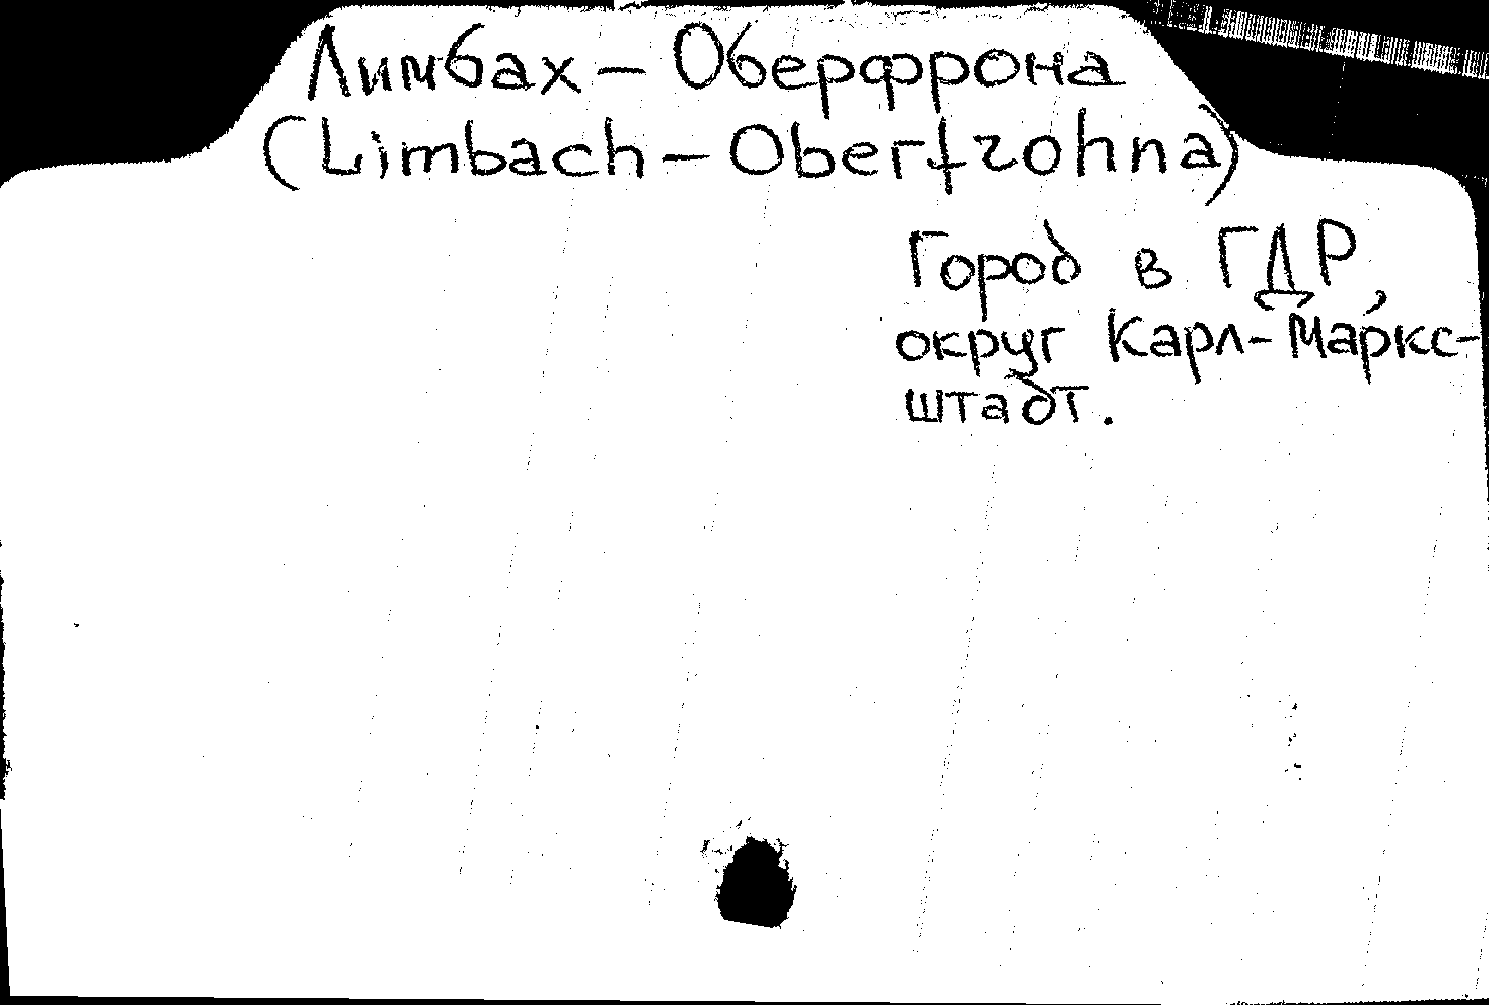 Лимбах - Оберфрона
(Limbach - Oberfrohna)
Город в ГДР,
округ Карл-Маркс-
штадт.